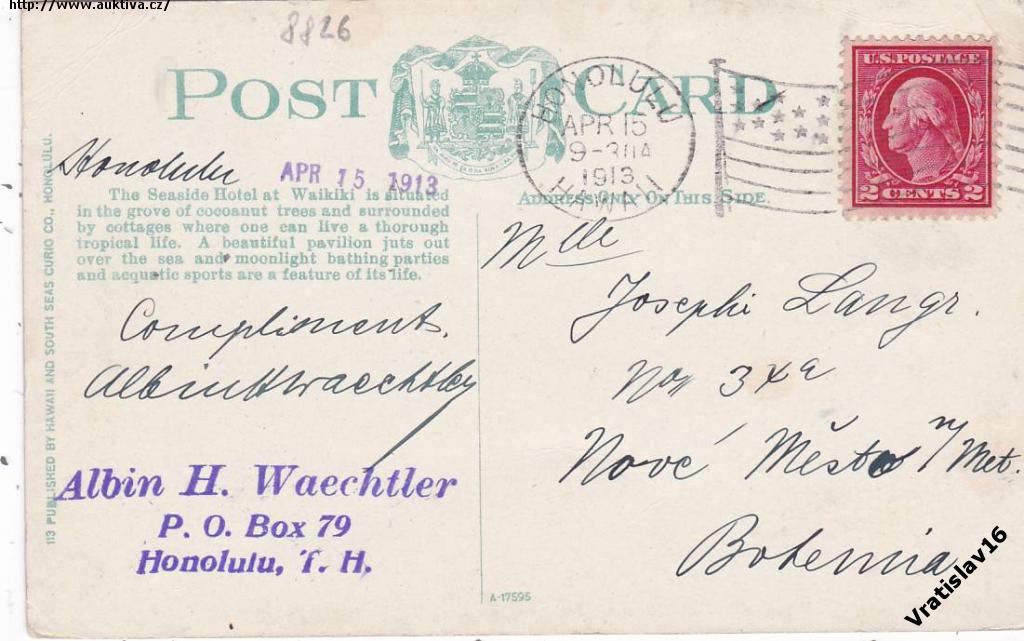 http://www.auktiva.cz/
8826
POST CARD
HONOLULU
APR 15
9-30A
1913
HAWAII
U.S. POSTAGE
2 CENTS 2
Honolulu
APR 15 1913
The Seaside Hotel at Waikiki is situated
in the grove of cocoanut trees and surrounded
by cottages where one can live a thorough
tropical life. A beautiful pavilion juts out
over the sea and moonlight bathing parties
and acquatic sports are a feature of its life.
ADDRESS ONLY ON THIS SIDE.
113 PUBLISHED BY HAWAII AND SOUTH SEAS CURIO CO., HONOLULU.
Compliment.
Albin H Waechtler
Albin H. Waechtler
P. O. Box 79
Honolulu, T. H.
Mlle
Josephi Langr.
No 
Nové Město n/Met.
Bohemia
A-17595
Vratislav16